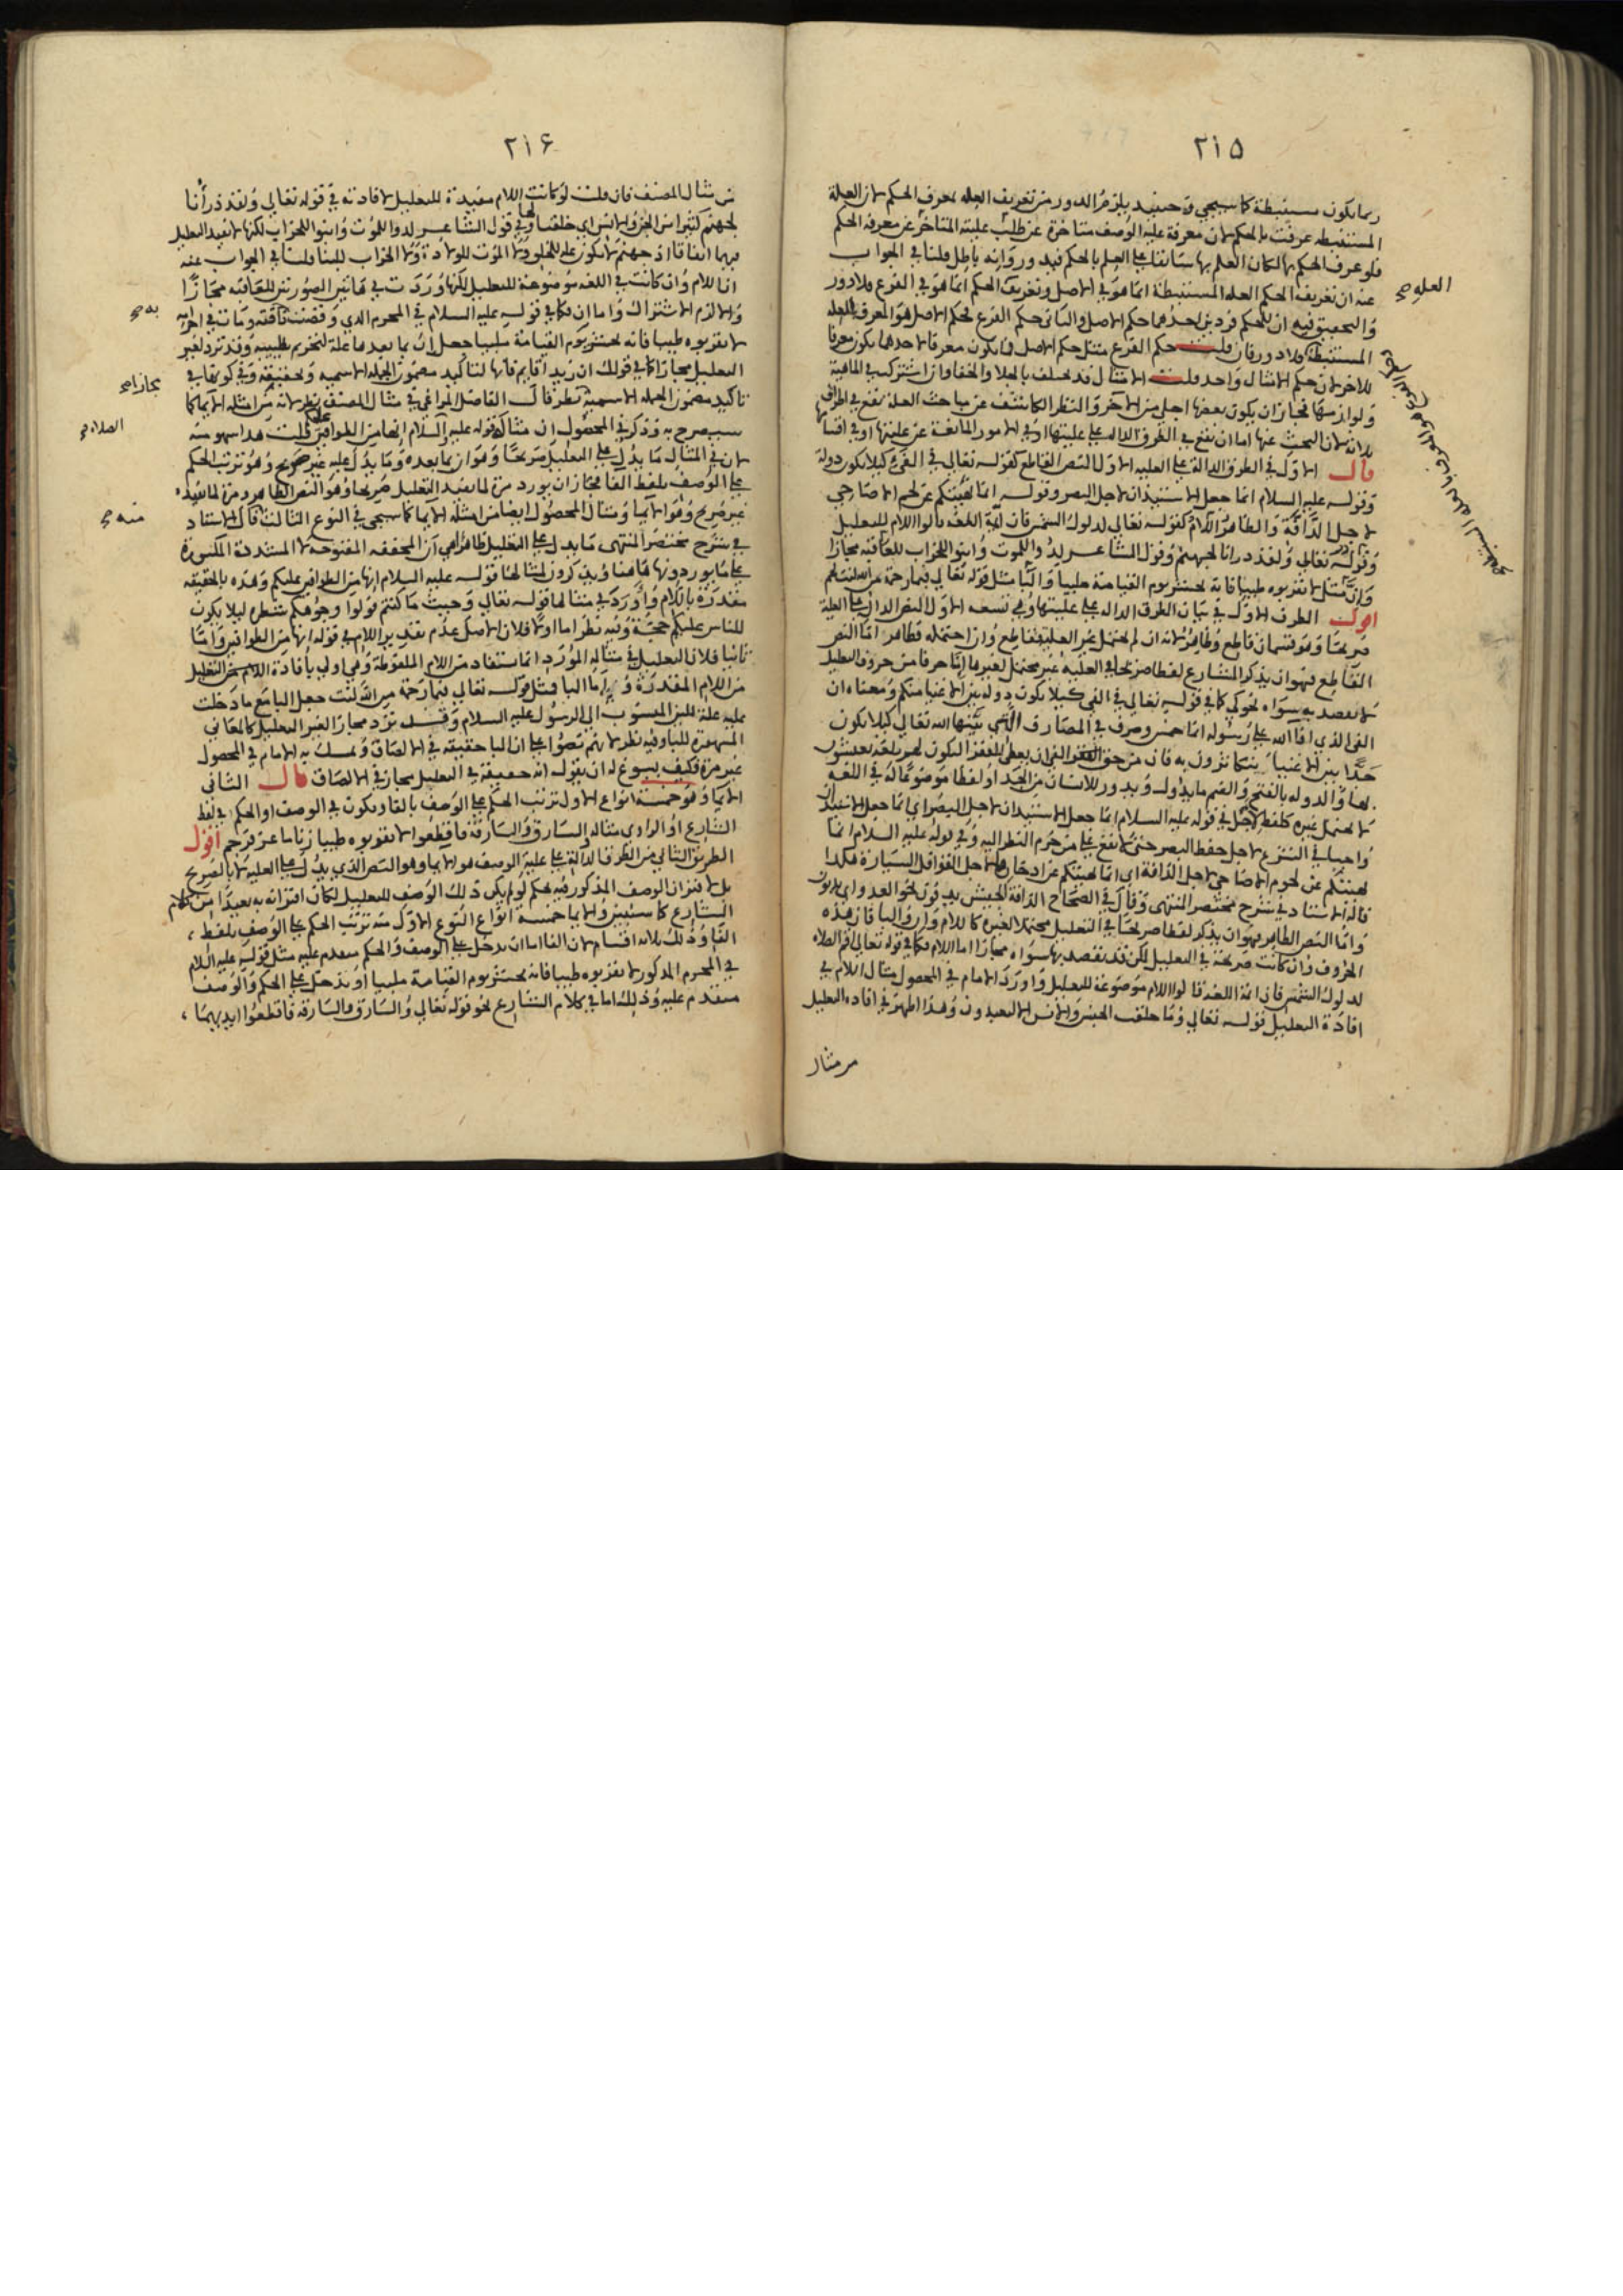 ٢١٥
ربما يكون مستنبطة كما سيجي وحينئذ يلزم الدور من تعريف العله بمعرف الحكم لان العلة
المستنبطه عرفت بالحكم لان معرفة علية الوصف متاخرة عن طلب عليته المتاخر عن معرفة الحكم
فلو عرف الحكم بها لكان العلم بها سابقا على العلم بالحكم فيدور وانه باطل قلنا في الجواب
عنه ان تعريف الحكم العله المستنبطة انما هو في الاصل وتعريف الحكم انما هو في الفرع فلا دور
العله صح
والتحقيق فيه ان للحكم فردين احدهما حكم الاصل والثاني حكم الفرع فحكم الاصل هو المعرف للعله
المستنبطة فلا دور فان قلت حكم الفرع مثل حكم الاصل فما يكون معرفا لاحدهما يكون معرفا
للاخر لان حكم الامثال واحد قلت الامثال قد تختلف بالجلا والخفا وان اشتركت في الماهية
ولوازمها فجاز ان يكون بعضها اجلى من الاخر والنظر الكاشف عن مباحث العلة يقع في اطراف
ثلاثة لان البحث عنها اما ان يقع في الطرق الداله على عليتها او في الامور المانعة عن عليتها او في اقسامها
قال الاول في الطرق الدالة على العليه الاول النص القاطع كقوله تعالى في الفيء كيلا يكون دولة
وقوله عليه السلام انما جعل الاستيذان لاجل البصر وقوله انما نهيتكم عن لحوم الاضاحي
لاجل الدافة والظاهر اللام كقوله تعالى لدلوك الشمس فان ائمة اللغه قالوا اللام للتعليل
وقوله تعالى ولقد ذرانا لجهنم وقول الشاعر لدوا للموت وابنوا للخراب للعاقبه مجازا
وان مثل لا تقربوه طيبا فانه يحشر يوم القيامة ملبيا والبا مثل قوله تعالى فبما رحمة من الله لنت لهم
اقول الطرف الاول في بيان الطرق الداله على عليتها وهي تسعه الاول النص الدال على العلة
صريحا وهو قسمان قاطع وظاهر لانه ان لم يحتمل غير العلية فقاطع وان احتمله فظاهر اما النص
القاطع فهو ان يذكر الشارع لفظا صريحا في العليه غير محتمل لغيرها اما حرفا من حروف التعليل
لا يقصد به سواه نحو كي كما في قوله تعالى في الفي كيلا يكون دولة بين الاغنيا منكم ومعناه ان
الفي الذي افا الله على رسوله انما خمس وصرف في المصارف التي بينها الله تعالى كيلا يكون
حدا بين الاغنيا يتكاثرون به فان من حق الفي ان يعطى للفقرا ليكون لهم بلغة يعيشون
بها والدوله بالفتح والضم ما يداول ويدور للانسان من الجد او لفظا موضوعا له في اللغه
لا يحتمل غيره كلفظ لاجل في قوله عليه السلام انما جعل الاستيذان لاجل البصر اي انما جعل الاستيذان
واجبا في الشرع لاجل حفظ البصر حتى لا يقع على من حرم النظر اليه وفي قوله عليه السلام انما
نهيتكم عن لحوم الاضاحي لاجل الدافة اي انما نهيتكم عن ادخارها لاجل القوافل السيارة هكذا
قاله الاستاد في شرح مختصر المنتهى وقال في الصحاح الدافة الجيش يدفون نحو العدو اي يدبون
واما النص الظاهر فهو ان يذكر لفظا صريحا في التعليل محتملا لغيره كاللام وان والبا فان هذه
الحروف وان كانت صريحة في التعليل لكن قد يقصد بها سواه مجازا اما اللام فكما في قوله تعالى اقم الصلاه
لدلوك الشمس فان ائمة اللغة قالوا اللام موضوعة للتعليل واورد الامام في المحصول مثال اللام في
افادة التعليل قوله تعالى وما خلقت الجن والانس الا ليعبدون وهذا اظهر في افاده التعليل
من مثال
٢١۶
من مثال المصنف فان قلت لو كانت اللام مفيدة للتعليل لافادته في قوله تعالى ولقد ذرأنا
لجهنم كثيرا من الجن والانس اي خلقنا لها وفي قول الشاعر لدوا للموت وابنوا للخراب لكنها لا تفيد التعليل
فيهما اتفاقا اذ جهنم لا تكون علة للخلق ولا الموت للولادة ولا الخراب للبنا قلنا في الجواب عنه
ان اللام وان كانت في اللغه موضوعة للتعليل لكنها وردت في هاتين الصورتين للعاقبه مجازا
والا لزم الاشتراك واما ان فكما في قوله عليه السلام في المحرم الذي وقصت ناقته ومات في احرامه
به صح
لا تقربوه طيبا فانه يحشر يوم القيامة ملبيا جعل ان بما بعدها علة لتحريم تطييبه وقد ترد لغير
التعليل مجازا كما في قولك ان زيدا قايم فانها لتاكيد مضمون الجمله الاسميه وحقيقة وفي كونها في
مجازا صح
تاكيد مضمون الجمله الاسمية نظر قال الفاضل المراغي في مثال المصنف نظر لانه من امثله الايما كما
سيصرح به وذكر في المحصول ان مثاله قوله عليه السلام انها من الطوافين عليكم قلت هذا سهو منه
الصلاه صح
لان في المثال ما يدل على التعليل صريحا وهو ان بما بعده وما يدل عليه غير صريح وهو ترتب الحكم
على الوصف بلفظ الفا فجاز ان يورد مرة لما يفيد التعليل صريحا وهو النص الظاهر ومرة لما يفيده
غير صريح وهو الايما ومثال المحصول ايضا من امثلة الايما كما سيجي في النوع الثالث قال الاستاد
منه صح
في شرح مختصر المنتهى ما يدل على التعليل ظاهرا هي ان المخففه المفتوحة لا المشددة المكسورة
على ما يوردونها هاهنا ويذكرون لمثالها قوله عليه السلام انها من الطوافين عليكم وهذه بالحقيقه
مقدرة باللام واورد في مثالها قوله تعالى وحيث ما كنتم فولوا وجوهكم شطره ليلا يكون
للناس عليكم حجة وفيه نظر اما اولا فلان الاصل عدم تقدير اللام في قوله انها من الطوافين واما
ثانيا فلان التعليل في مثاله المورد انما يستفاد من اللام الملفوظة وهي اولى بافادة التعليل
من اللام المقدرة واما البا فمثل قوله تعالى فبما رحمة من الله لنت جعل البا مع ما دخلت
عليه علة للين المنسوب الى الرسول عليه السلام وقد ترد مجازا لغير التعليل كالمعاني
المشهورة للبا وفيه نظر لانهم نصوا على ان البا حقيقه في الالصاق وتمسك به الامام في المحصول
غير مرة فكيف يسوغ له ان يقول انه حقيقة في التعليل مجاز في الالصاق قال الثاني
الايما وهو خمسة انواع الاول ترتب الحكم على الوصف بالفا ويكون في الوصف او الحكم في لفظ
الشارع او الراوي مثاله السارق والسارقة فاقطعوا لا تقربوه طيبا زنا ماعز فرجم اقول
الطريق الثاني من الطرق الدالة على علية الوصف هو الايما وهو النص الذي يدل على العلية لا بالصريح
بل لاقتران الوصف المذكور فيه بحكم لو لم يكن ذلك الوصف للتعليل لكان اقترانه به بعيدا من كلام
الشارع كما ستبين والايما خمسة انواع النوع الاول منه ترتب الحكم على الوصف بلفظ
الفا وذلك ثلاثة اقسام لان الفا اما ان تدخل على الوصف والحكم متقدم عليه مثل قوله عليه السلام
في المحرم المذكور لا تقربوه طيبا فانه يحشر يوم القيامة ملبيا او تدخل على الحكم والوصف
متقدم عليه وذلك اما في كلام الشارع نحو قوله تعالى والسارق والسارقة فاقطعوا ايديهما